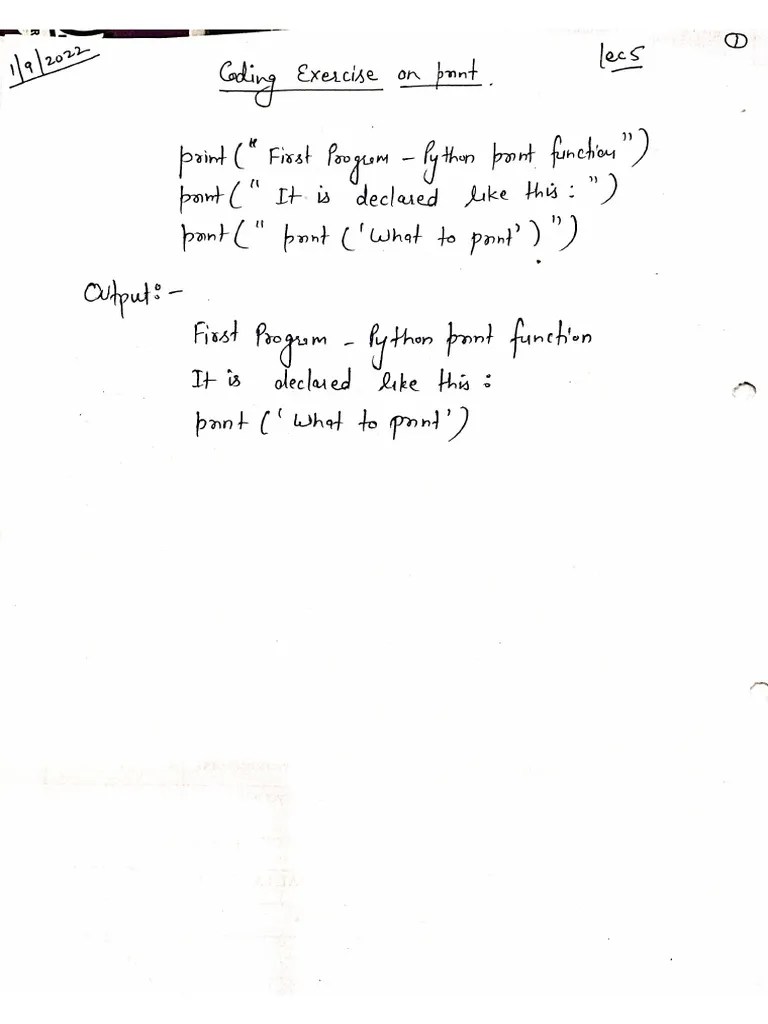 1/9/2022
lec 5
1
Coding Exercise on print.
print(" First Program - Python print function")
print(" It is declared like this: ")
print(" print ('What to print') ")
Output:-
First Program - Python print function
It is declared like this:
print ('What to print')